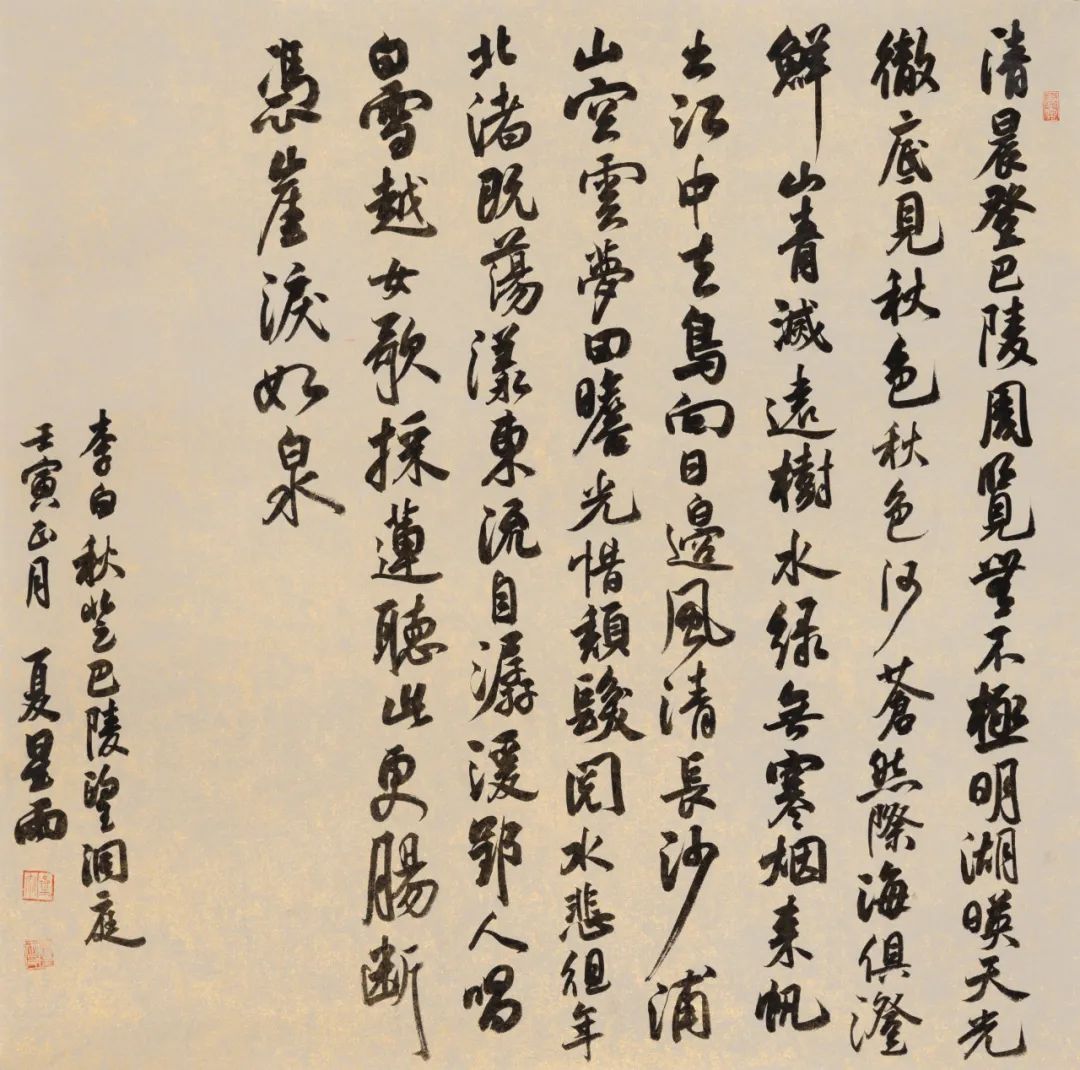 清晨登巴陵周覽無不極明湖暎天光
徹底見秋色秋色何蒼然際海俱澄
鮮山青滅遠樹水綠無寒烟来帆
出江中去鳥向日邊風清長沙浦
山空雲夢田瞻光惜頹髮閱水悲徂年
北渚既蕩漾東流自潺湲郢人唱
白雪越女歌採蓮聽此更腸斷
憑崖淚如泉
李白秋登巴陵望洞庭
壬寅正月 夏星雨